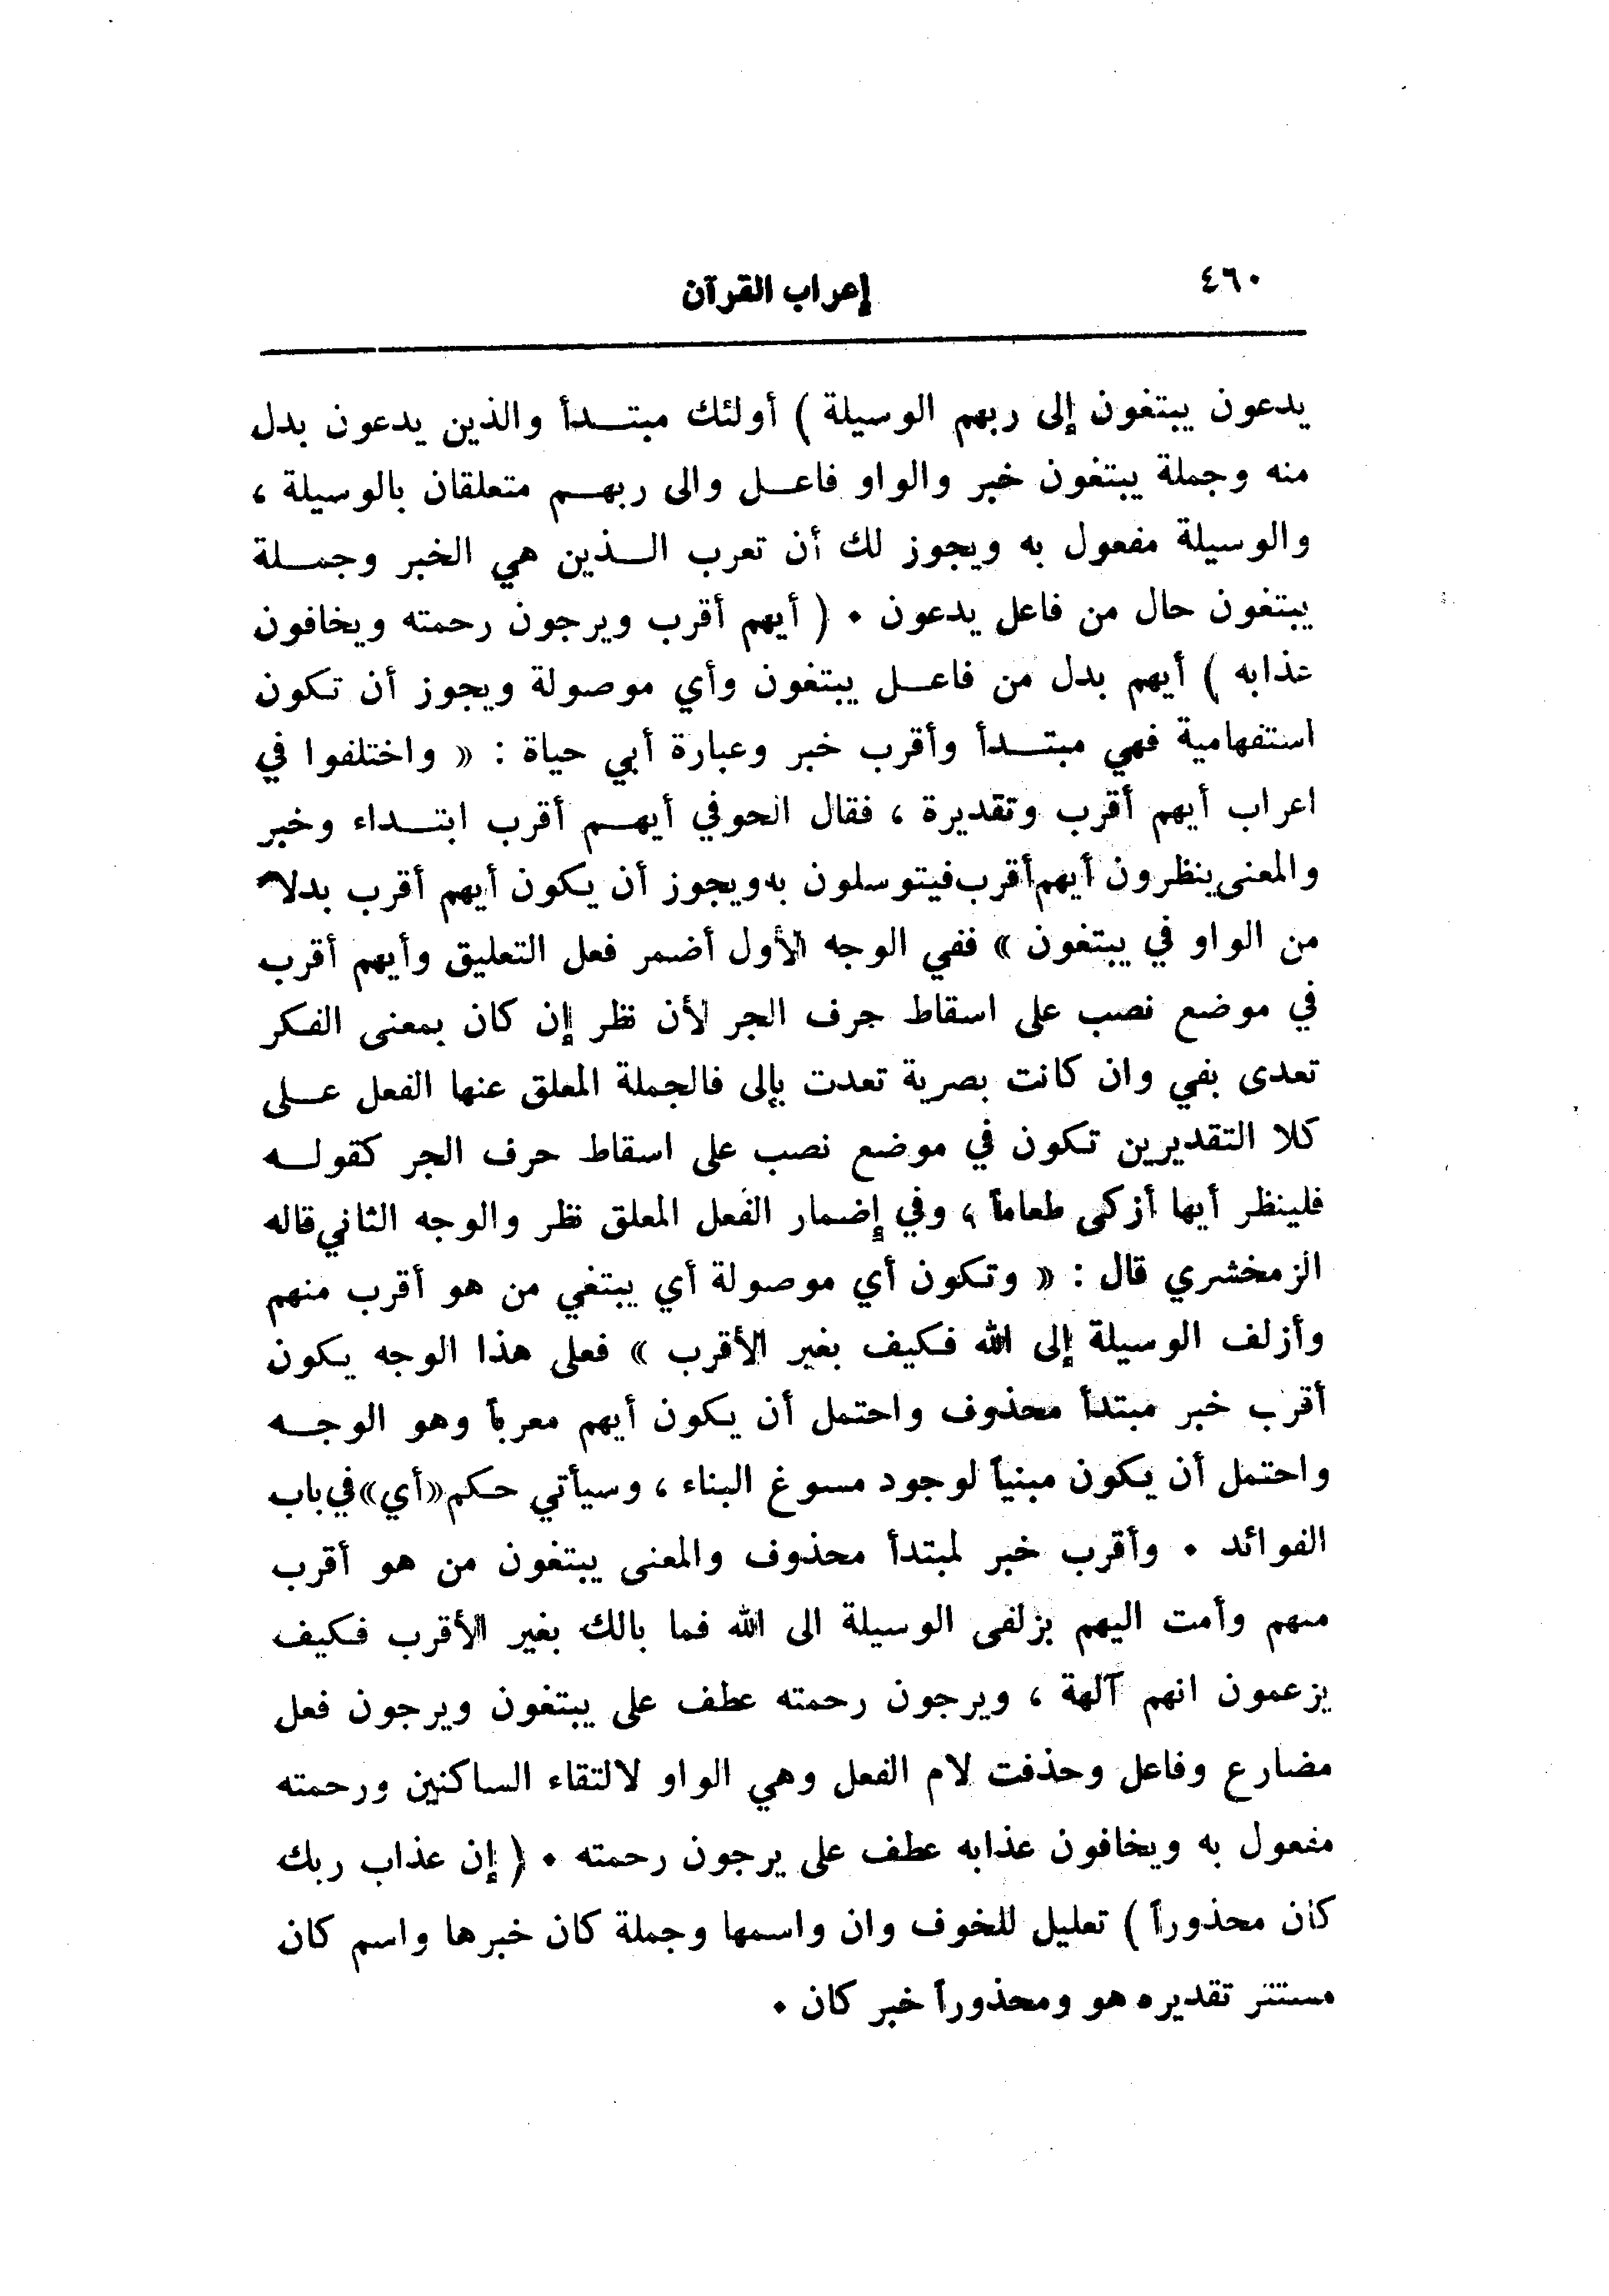 ٤٦٠
إعراب القرآن
يدعون يبتغون إلى ربهم الوسيلة ) أولئك مبتــدأ والذين يدعون بدل
منه وجملة يبتغون خبر والواو فاعــل والى ربهــم متعلقان بالوسيلة ،
والوسيلة مفعول به ويجوز لك أن تعرب الــذين هي الخبر وجمــلة
يبتغون حال من فاعل يدعون ٠ ( أيهم أقرب ويرجون رحمته ويخافون
عذابه ) أيهم بدل من فاعــل يبتغون وأي موصولة ويجوز أن تكون
استفهامية فهي مبتــدأ وأقرب خبر وعبارة أبي حياة : « واختلفوا في
اعراب أيهم أقرب وتقديرة ، فقال الحوفي أيهــم أقرب ابتــداء وخبر
والمعنى ينظرون أيهم أقرب فيتوسلون به ويجوز أن يكون أيهم أقرب بدلا
من الواو في يبتغون » ففي الوجه الأول أضمر فعل التعليق وأيهم أقرب
في موضع نصب على اسقاط جرف الجر لأن نظر إن كان بمعنى الفكر
تعدى بفي وان كانت بصرية تعدت بإلى فالجملة المعلق عنها الفعل عــلى
كلا التقديرين تكون في موضع نصب على اسقاط حرف الجر كقولــه
فلينظر أيها أزكى طعاماً ، وفي إضمار الفعل المعلق نظر والوجه الثاني قاله
الزمخشري قال : « وتكون أي موصولة أي يبتغي من هو أقرب منهم
وأزلف الوسيلة إلى الله فكيف بغير الأقرب » فعلى هذا الوجه يكون
أقرب خبر مبتدأ محذوف واحتمل أن يكون أيهم معرباً وهو الوجــه
واحتمل أن يكون مبنياً لوجود مسوغ البناء ، وسيأتي حكم «أي» في باب
الفوائد ٠ وأقرب خبر لمبتدأ محذوف والمعنى يبتغون من هو أقرب
منهم وأمت اليهم بزلفى الوسيلة الى الله فما بالك بغير الأقرب فكيف
يزعمون انهم آلهة ، ويرجون رحمته عطف على يبتغون ويرجون فعل
مضارع وفاعل وحذفت لام الفعل وهي الواو لالتقاء الساكنين ورحمته
مفعول به ويخافون عذابه عطف على يرجون رحمته ٠ ( إن عذاب ربك
كان محذوراً ) تعليل للخوف وان واسمها وجملة كان خبرها واسم كان
مستتر تقديره هو ومحذوراً خبر كان ٠